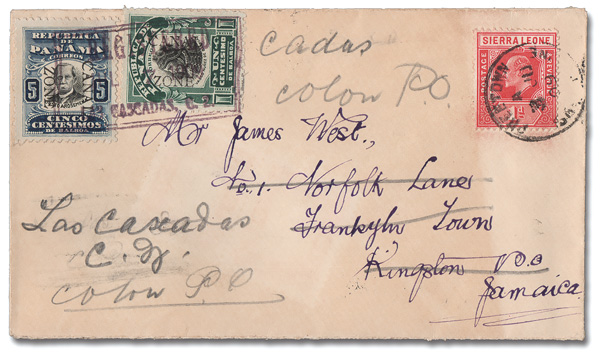 REPUBLICA
DE
PANAMA
CORREOS
CANAL
ZONE
5 5
CINCO
CENTESIMOS
DE BALBOA
1 CENTESIMO
DE BALBOA
CASCADAS, C.Z.
SIERRA LEONE
POSTAGE
REVENUE
1d
FREETOWN
cadas
Colon P.O.
Mr James West.,
No. 1. Norfolk Lane
Frankyln Town
Kingston P.O
Jamaica
Las Cascadas
C. Z.
Colon P.O